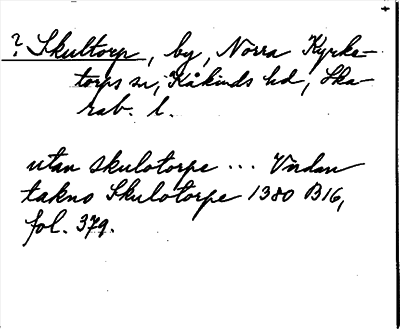 ? Skultorp, by, Norra Kyrke-
torps sn, Kåkinds hd, Ska-
rab. l.
utan skulotorpe ... Vndan
takno Skulotorpe 1380 B16,
fol. 379.